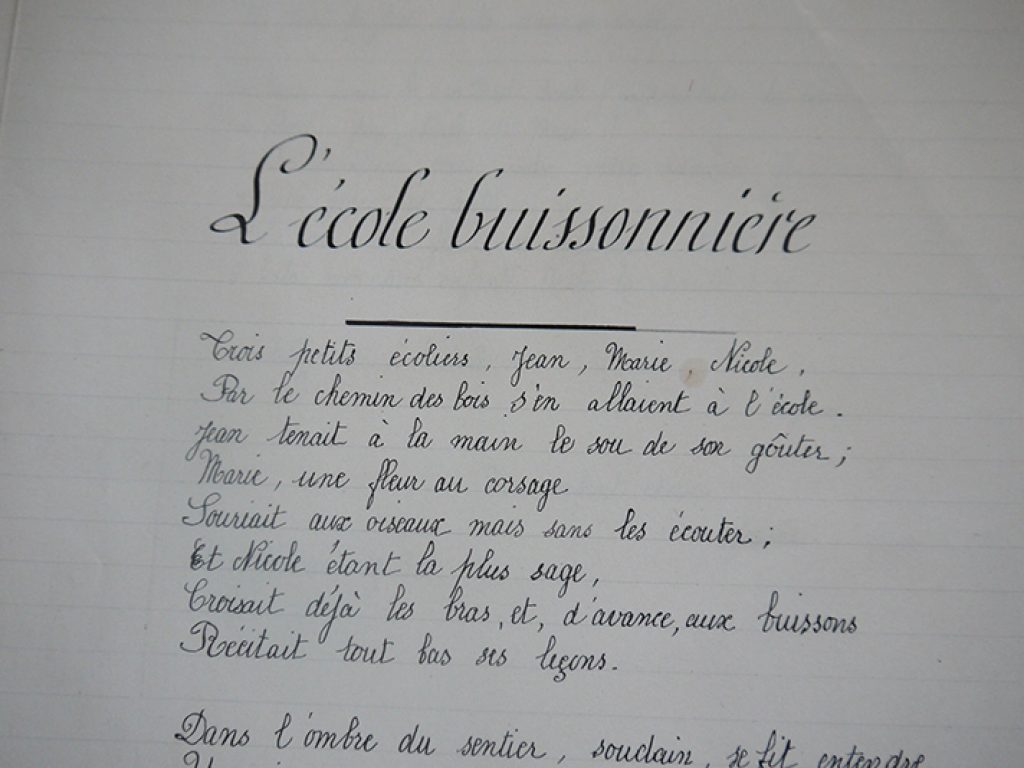 L'école buissonnière
Trois petits écoliers, Jean, Marie, Nicole,
Par le chemin des bois s'en allaient à l'école.
Jean tenait à la main le sou de son goûter;
Marie, une fleur au corsage
Souriait aux oiseaux mais sans les écouter;
Et Nicole étant la plus sage,
Croisait déjà les bras, et, d'avance, aux buissons
Récitait tout bas ses leçons.
Dans l'ombre du sentier, soudain, se fit entendre